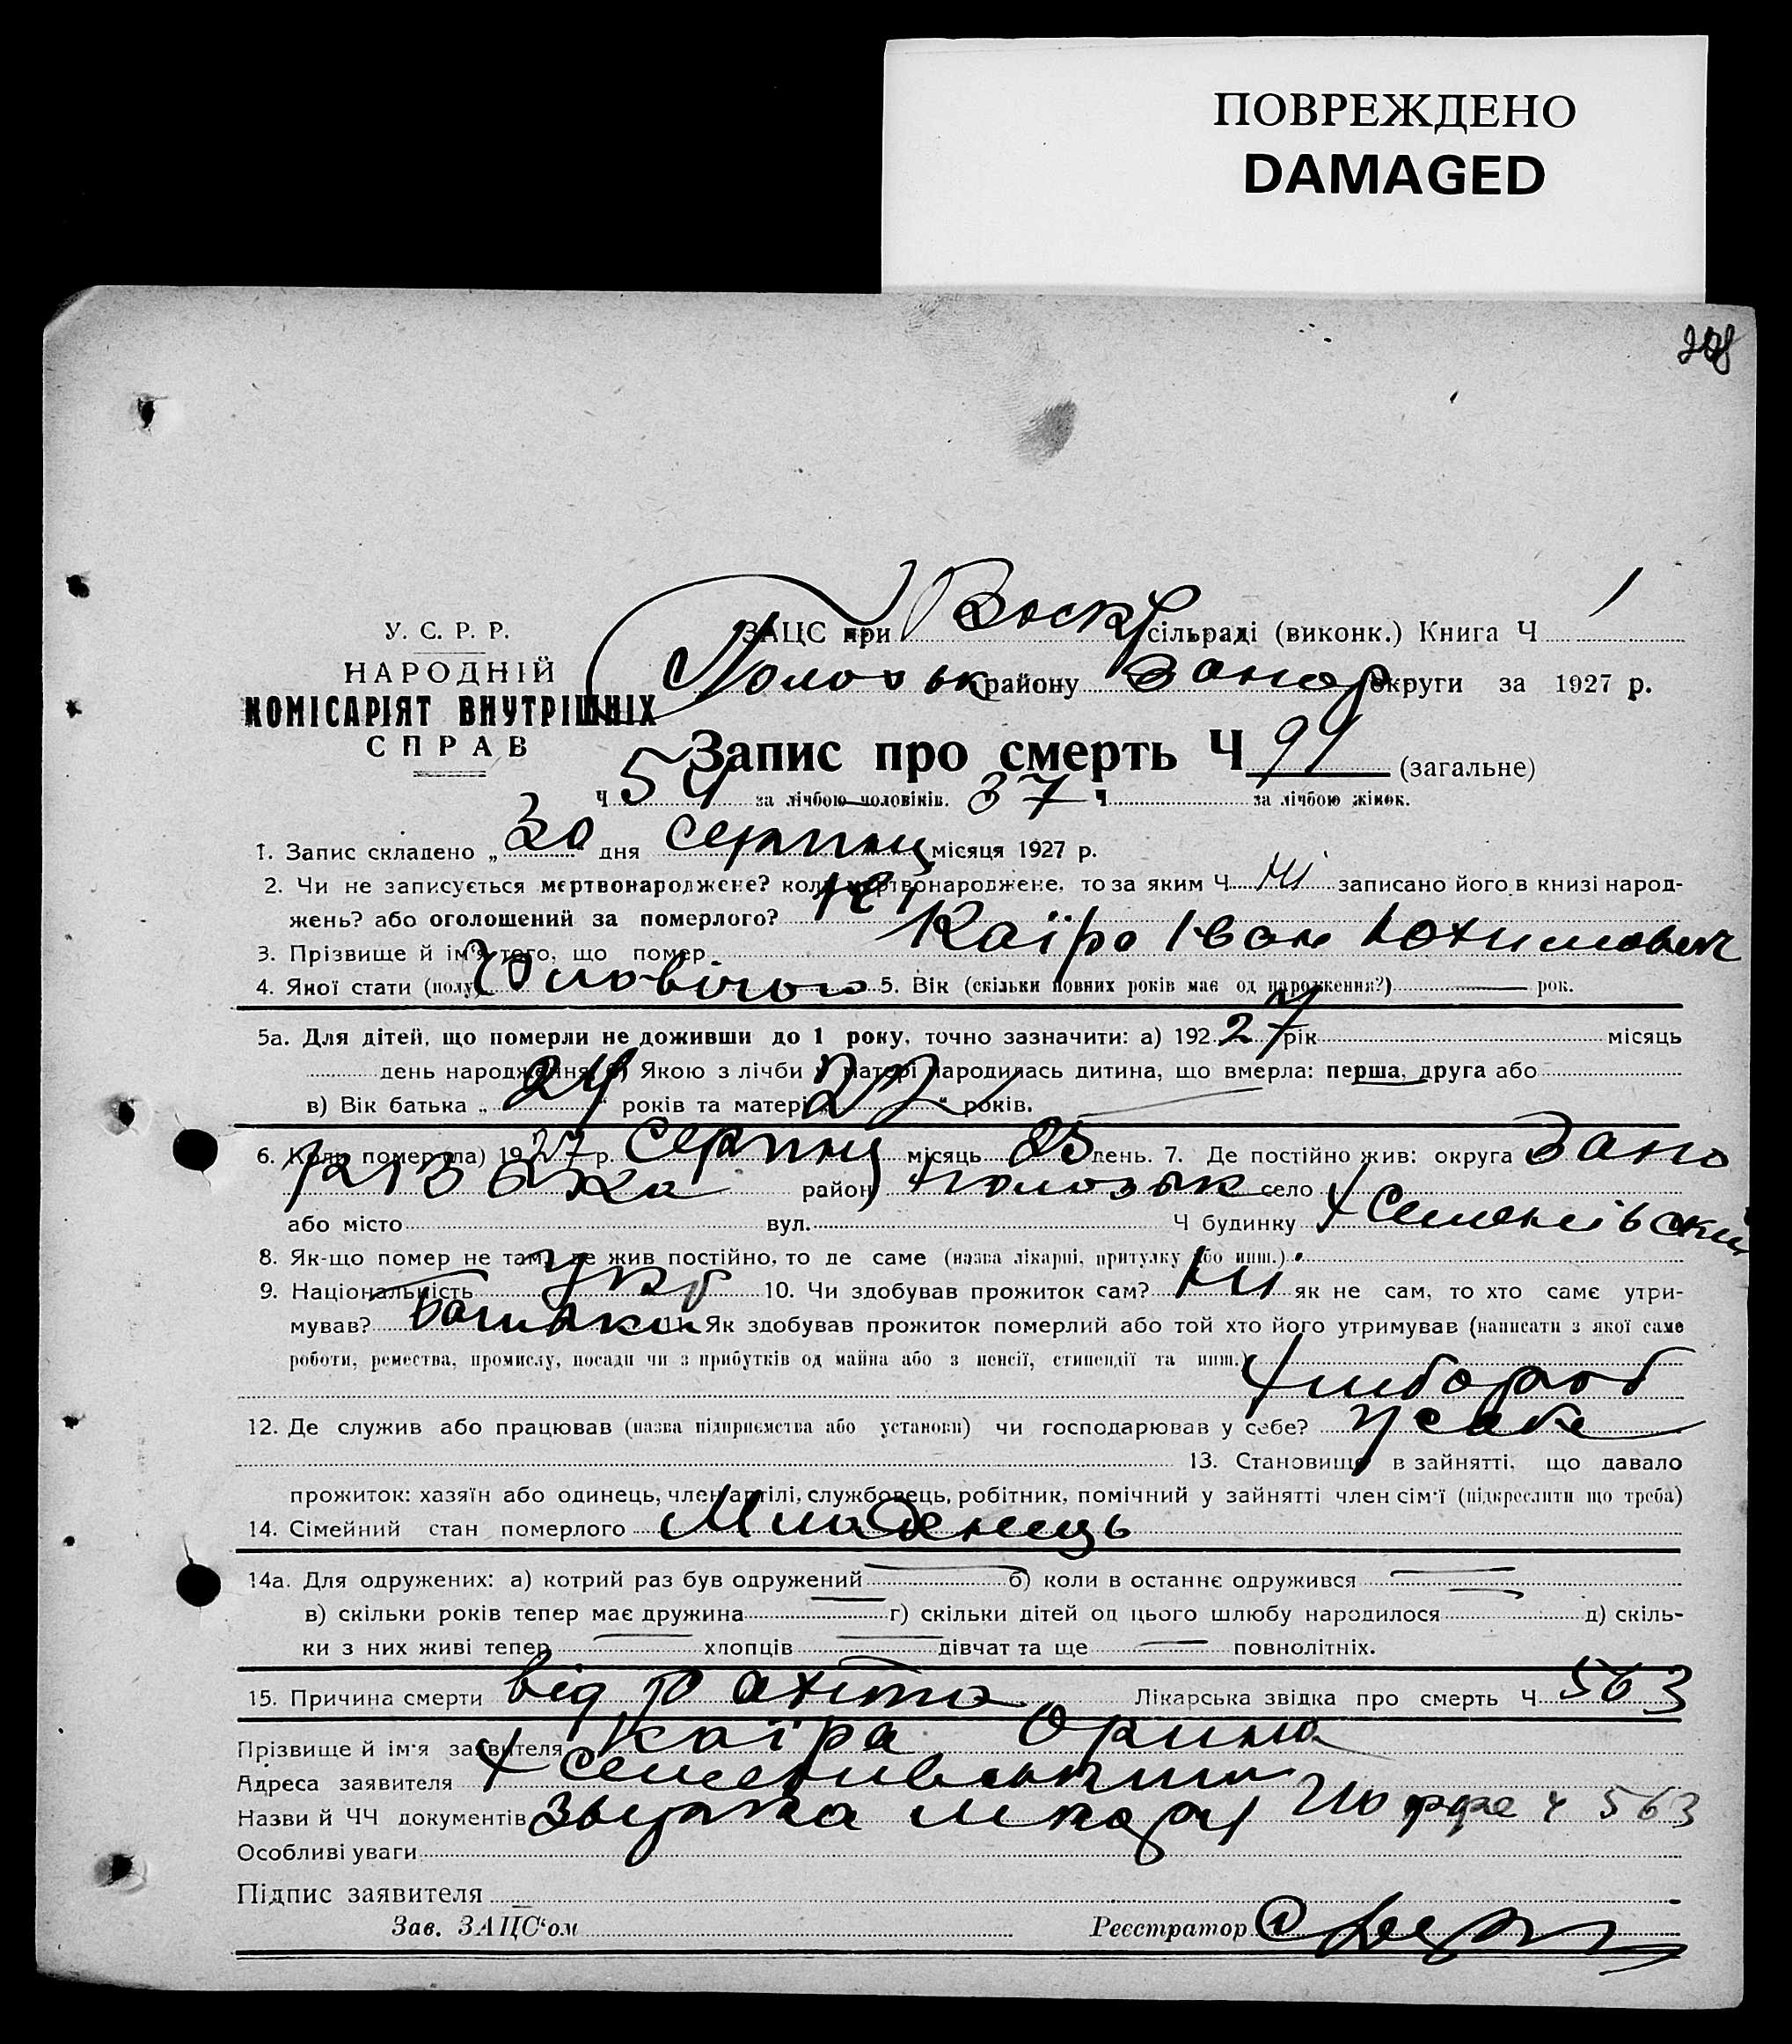 ПОВРЕЖДЕНО
DAMAGED
У. С. Р. Р.
НАРОДНІЙ
КОМІСАРІЯТ ВНУТРІШНІХ
СПРАВ
ЗАЦС при Воскр сільраді (виконк.) Книга Ч 1
Пологськ району Запор округи за 1927 р.
Запис про смерть Ч 99 (загальне)
Ч за лічбою чоловіків. 37 Ч за лічбою жінок.
1. Запис складено „30“ дня серпня місяця 1927 р.
2. Чи не записується мертвонароджене? коли мертвонароджене, то за яким Ч ні записано його в книзі народ-
жень? або оголошений за померлого? ні
3. Прізвище й ім'я того, що помер Каіра Іван Юхимович
4. Якої стати (полу) Чоловічою 5. Вік (скільки повних років має од народження?) — рок.
5а. Для дітей, що померли не доживши до 1 року, точно зазначити: а) 192 27 рік місяць
день народження б) Якою з лічби у матері народилась дитина, що вмерла: перша, друга або
в) Вік батька „24“ років та матері „22“ років.
6. Коли помер(ла) 1927 р. серпня місяць 25 день. 7. Де постійно жив: округа Запо
різька район Пологськ село
або місто вул. Ч будинку х Семенівський
8. Як-що помер не там, де жив постійно, то де саме (назва лікарні, притулку або инш.)
9. Національність укр 10. Чи здобував прожиток сам? ні як не сам, то хто саме утри-
мував? батьки 11. Як здобував прожиток померлий або той хто його утримував (написати з якої саме
роботи, ремества, промислу, посади чи з прибутків од майна або з пенсії, стипендії та инш.)
хлібороб
12. Де служив або працював (назва підприємства або установи) чи господарював у себе? у себе
13. Становище в зайнятті, що давало
прожиток: хазяїн або одинець, член артілі, службовець, робітник, помічний у зайнятті член сім'ї (підкреслити що треба)
14. Сімейний стан померлого Младенець
14а. Для одружених: а) котрий раз був одружений — б) коли в останнє одружився —
в) скільки років тепер має дружина — г) скільки дітей од цього шлюбу народилося — д) скіль-
ки з них живі тепер — хлопців — дівчат та ще — повнолітніх.
15. Причина смерти від рахіта Лікарська звідка про смерть Ч 563
Прізвище й ім'я заявителя Каїра Орина
Адреса заявителя х Семенивський
Назви й ЧЧ документів ч 563
Особливі уваги
Підпис заявителя
Зав. ЗАЦС‘ом Реєстратор